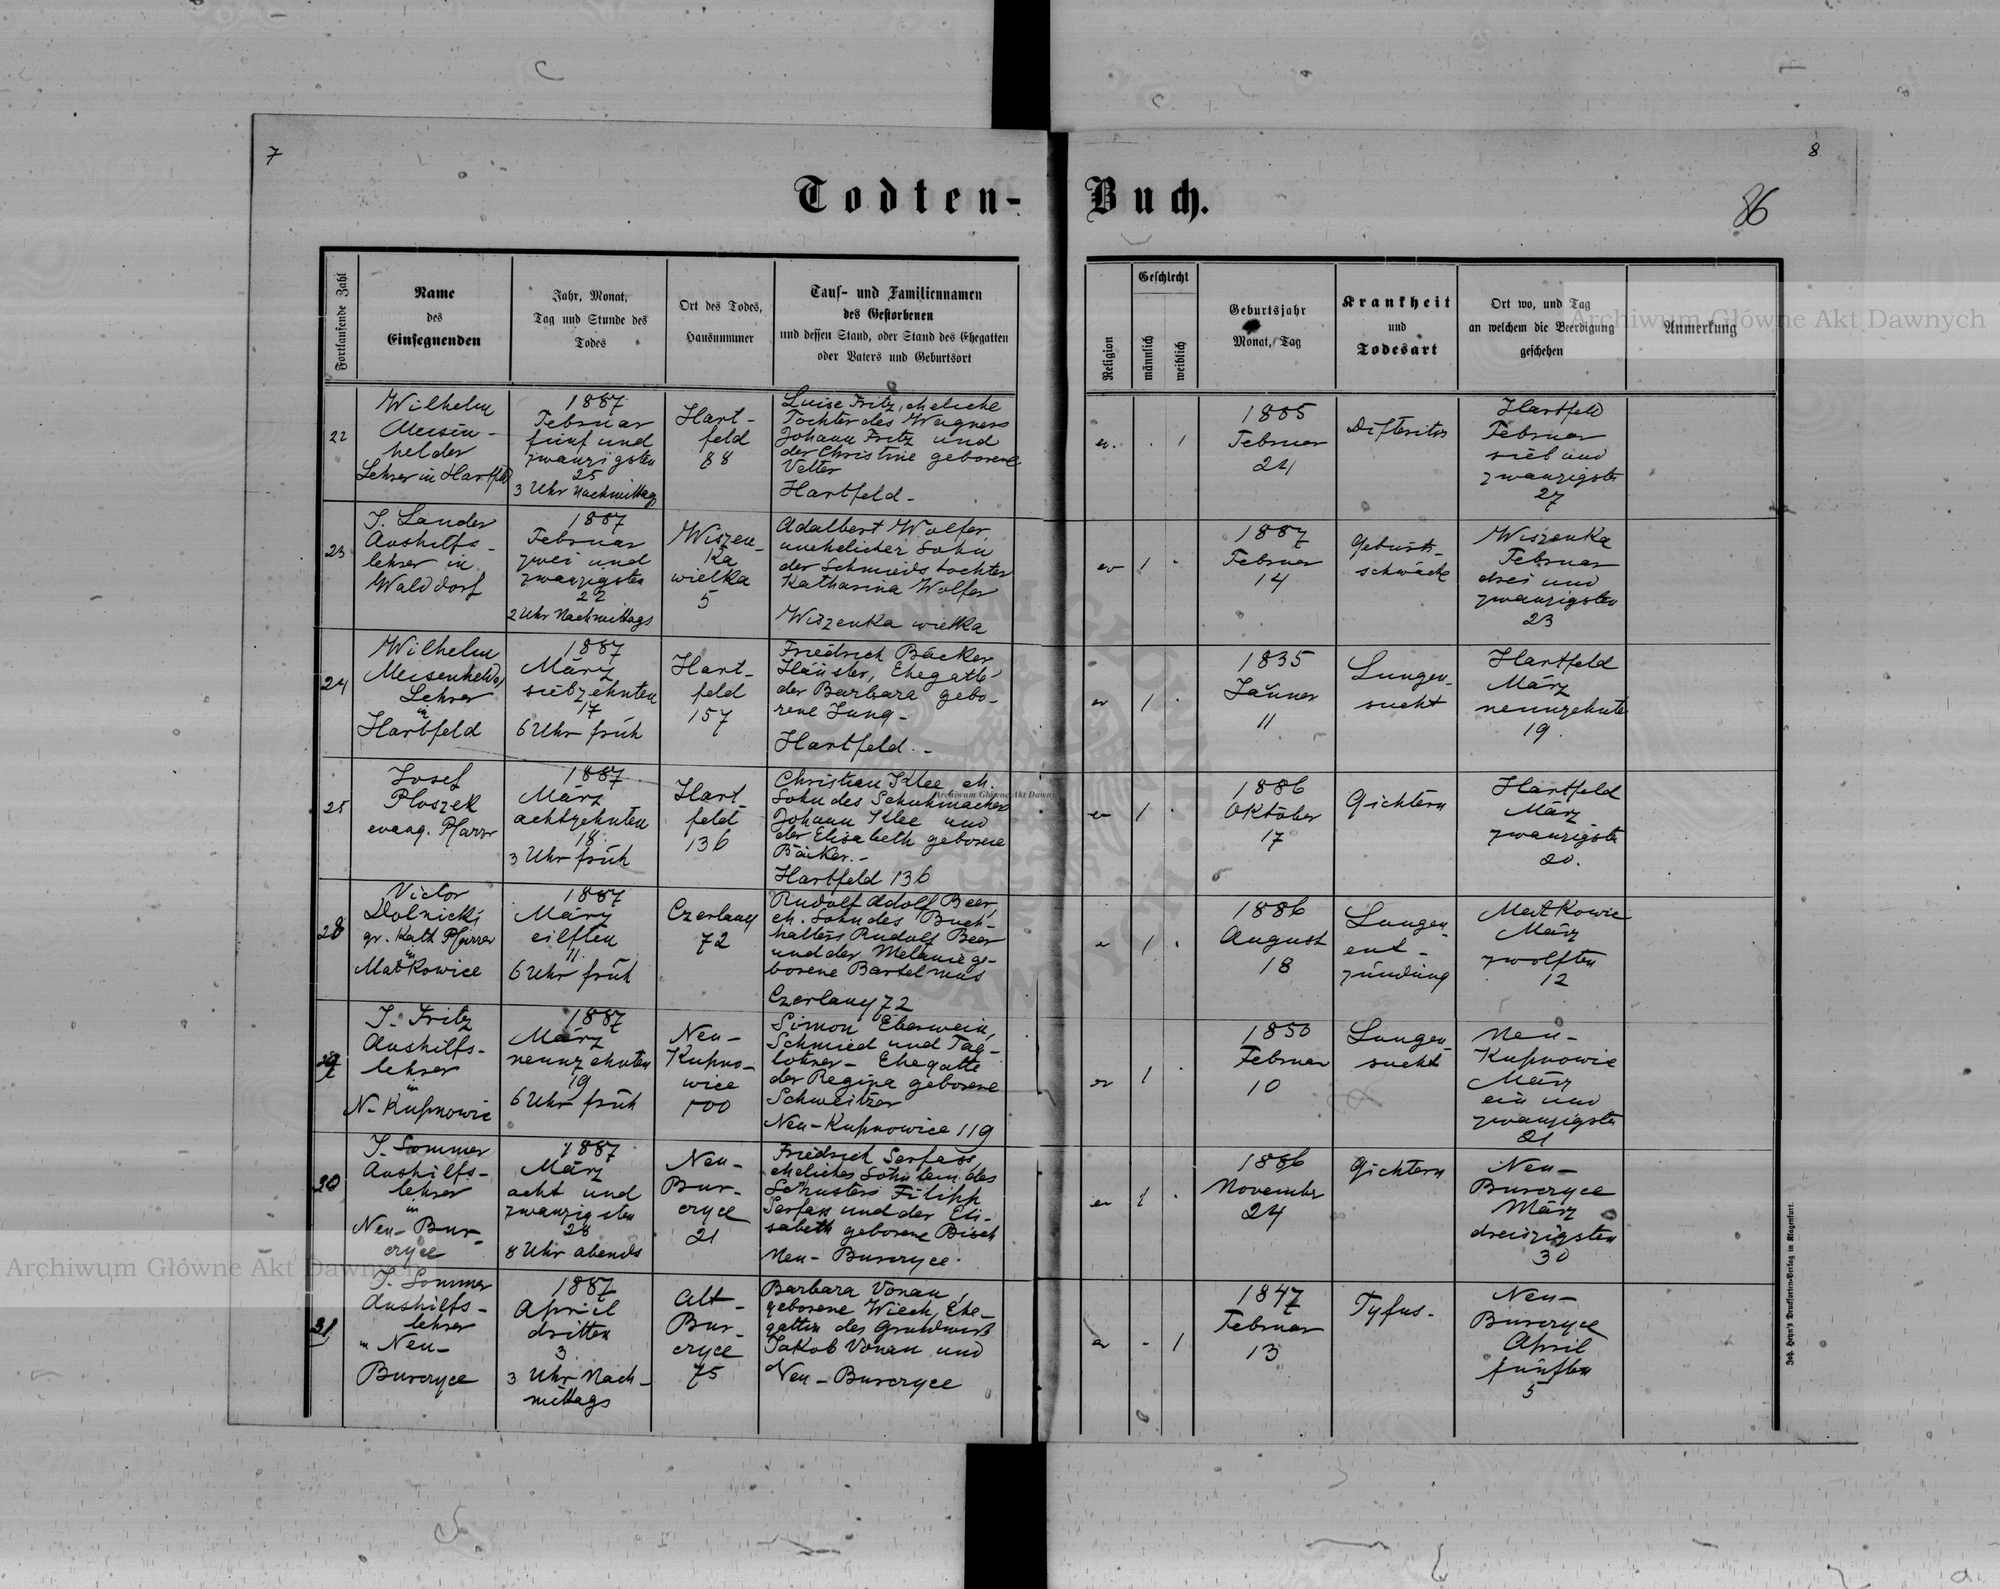 7
8
86
Todten-Buch.
Fortlaufende Zahl
Name
des
Einsegnenden
Jahr, Monat,
Tag und Stunde des
Todes
Ort des Todes,
Hausnummer
Tauf- und Familiennamen
des Gestorbenen
und dessen Stand, oder Stand des Ehegatten
oder Vaters und Geburtsort
Religion
Geschlecht
männlich
weiblich
Geburtsjahr
Monat, Tag
Krankheit
und
Todesart
Ort wo, und Tag
an welchem die Beerdigung
geschehen
Anmerkung
22
Wilhelm
Meisen-
helder
Lehrer in Hartfeld
1887
Februar
fünf und
zwanzigsten
25
3 Uhr Nachmittag
Hart-
feld
88
Luise Fritz, eheliche
Tochter des Wagners
Johann Fritz und
der Christine geborene
Vetter
Hartfeld-
ev.
1
1885
Februar
24
Difteritis
Hartfeld
Februar
sieb und
zwanzigste
27
23
J. Lander
Aushilfs-
lehrer in
Walddorf
1887
Februar
zwei und
zwanzigsten
22
2 Uhr Nachmittags
Wiszen-
ka
wielka
5
Adalbert Wolfer,
unehelicher Sohn
der Schmieds tochter
Katharina Wolfer
Wiszenka wielka
ev
1
1887
Februar
14
Geburts-
schwäche
Wiszenka
Februar
drei und
zwanzigsten
23
24
Wilhelm
Meisenhelder
Lehrer
in
Hartfeld
1887
März
siebzehnten
17
6 Uhr früh
Hart-
feld
157
Friedrich Bäcker
Häusler, Ehegatte
der Barbara gebo-
rene Jung-
Hartfeld.-
ev
1
1835
Jänner
11
Lungen-
sucht
Hartfeld
März
neunzehnte
19.
25
Josef
Ploszek
evang. Pfarrer
1887
März
achtzehnten
18.
3 Uhr früh
Hart-
feld
136
Christian Klee eh.
Sohn des Schuhmachers
Johann Klee und
der Elisabeth geborene
Bäcker.-
Hartfeld 136
ev
1
1886
Oktober
17
Gichtern
Hartfeld
März
zwanzigste
20.
28
Victor
Dolnicki
gr. Kath Pfarrer
in
Matkowice
1887
März
eilften
11.
6 Uhr früh
Czerlany
72
Rudolf Adolf Beer,
eh. Sohn des Buch-
halters Rudolf Beer
und der Melanie ge-
borene Bartelmus
Czerlany 72
1
1886
August
18
Lungen-
ent-
zündung
Matkowice
März
zwölften
12
J. Fritz
Aushilfs-
lehrer
in
N-Kupnowice
1887
März
neunzehnten
19
6 Uhr früh
Neu-
Kupno-
wice
100
Simon Eberwein,
Schmied und Tag-
löhner- Ehegatte
der Regina geborene
Schweitzer
Neu-Kupnowice 119
ev
1
1850
Februar
10
Lungen-
sucht
Neu-
Kupnowice
März
ein und
zwanzigsten
21
30
J. Sommer
Aushilfs-
lehrer
in
Neu-Bur-
czyce
1887
März
acht und
zwanzigsten
28
8 Uhr abends
Neu-
Bur-
czyce
21
Friedrich Serfass,
eheliches Söhnlein des
Schusters Filipp
Serfass und der Eli-
sabeth geborene Bisch
Neu-Burczyce.
ev
1
1886
November
24
Gichtern
Neu-
Burczyce
März
dreizigsten
30
31
J. Sommer
Aushilfs-
lehrer
in Neu-
Burczyce
1887
April
dritten
3.
3 Uhr Nach-
mittags
Alt-
Bur-
czyce
75
Barbara Vonau,
geborene Wiech, Ehe-
gattin des Grundwirt
Jakob Vonau und
Neu-Burczyce
1
1847
Februar
13
Tyfus.
Neu-
Burczyce
April
fünften
5
Joh. Heyn's Drucksorten-Verlag in Klagenfurt.
Archiwum Główne Akt Dawnych
Archiwum Główne Akt Dawnych
Archiwum Główne Akt Dawnych